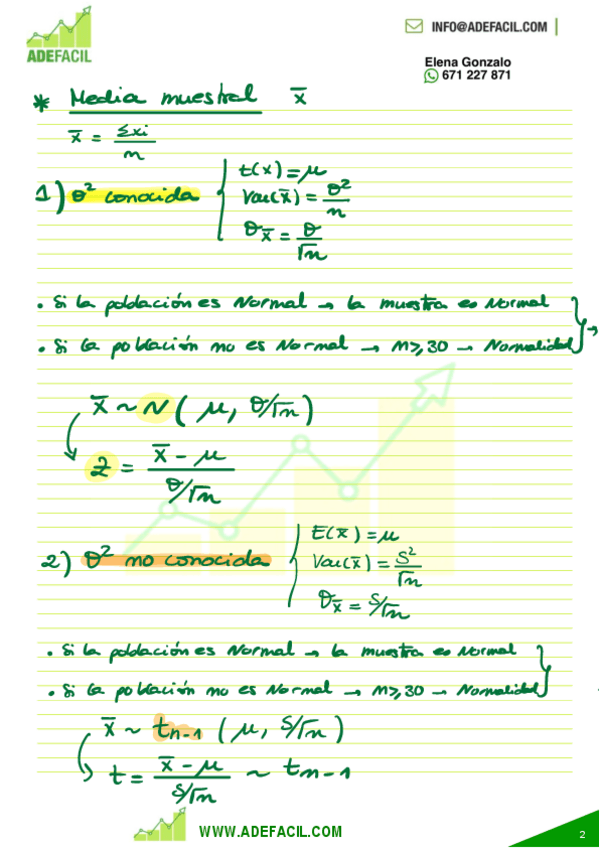 ADEFACIL
INFO@ADEFACIL.COM |
Elena Gonzalo
671 227 871
* Media muestral x̄
x̄ = Σxi / n
1) θ² conocida { E(x) = μ
Var(x̄) = θ²/n
θx̄ = θ/√n
• Si la población es Normal → la muestra es Normal
• Si la población no es Normal → n ≥ 30 → Normalidad } →
x̄ ~ N ( μ, θ/√n )
Z = (x̄ - μ) / (θ/√n)
2) θ² no conocida { E(x̄) = μ
Var(x̄) = S²/√n
θx̄ = S/√n
• Si la población es Normal → la muestra es Normal
• Si la población no es Normal → n ≥ 30 → Normalidad }
x̄ ~ tn-1 ( μ, S/√n )
t = (x̄ - μ) / (S/√n) ~ tn-1
WWW.ADEFACIL.COM
2